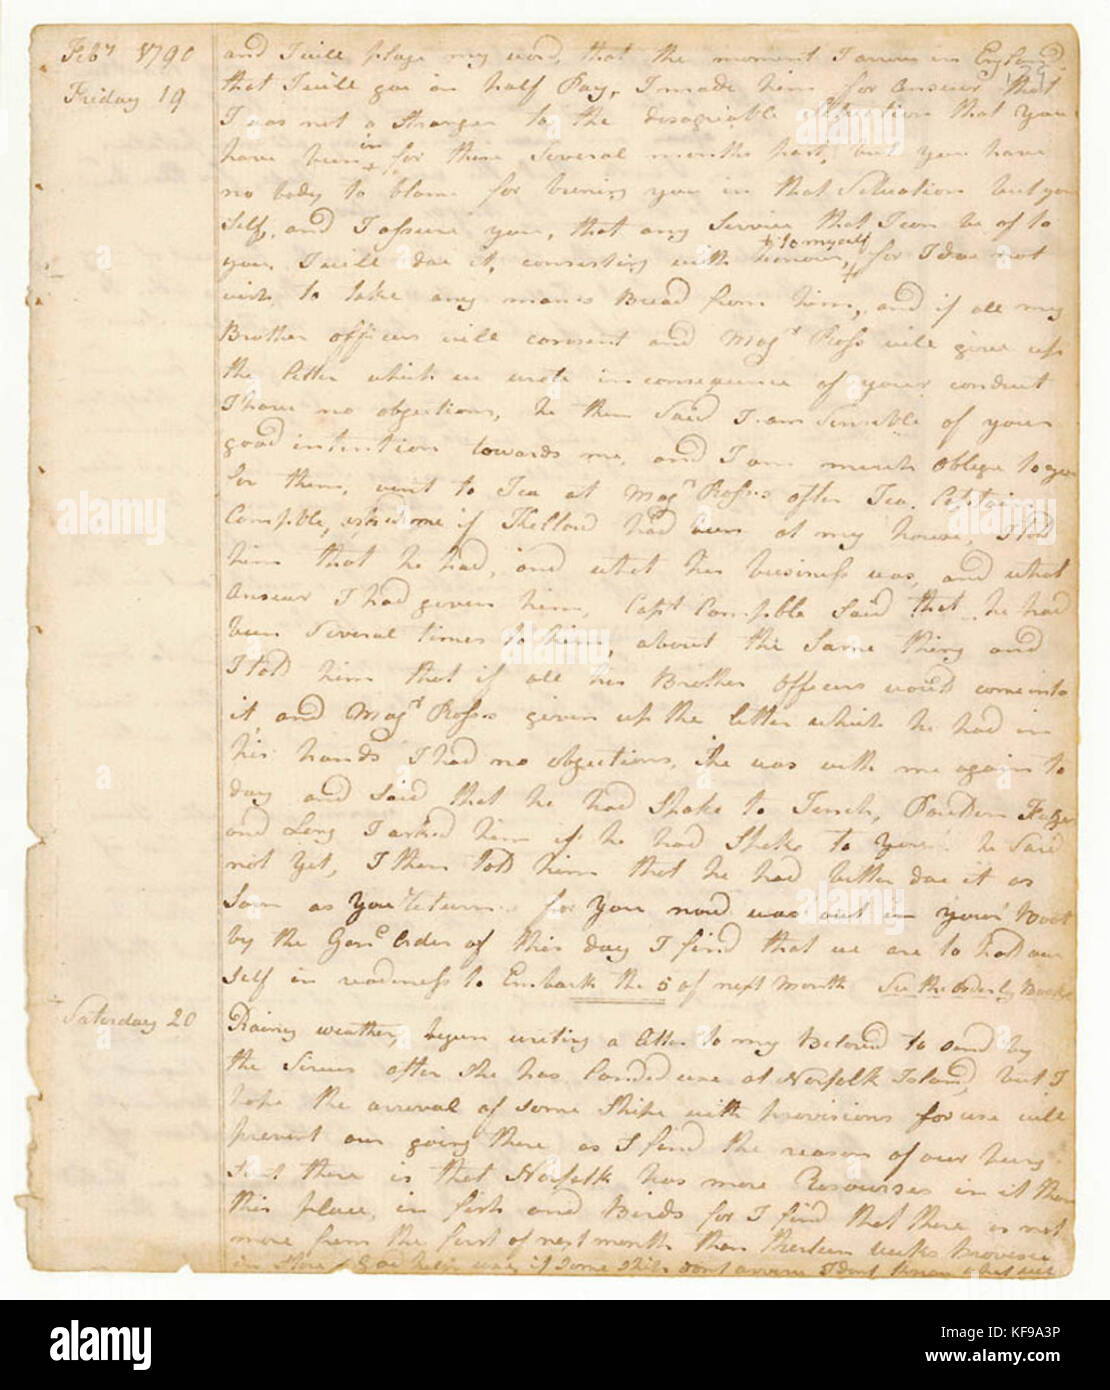 Feby 1790
Friday 19
and I will plage my word, that the moment I arrive in England
that I will goe on half Pay, I made him for answer that
I was not a Stranger to the disagriable Situation that you
have been in for these Several months past, but you have
no body to blame for bring you in that Situation but your
Self, and I assure you, that any Service that I can be of to
you I will doe it, consisting with honour, to myself for I doe not
wish to take any mans Bread from him, and if all my
Brother officers will consent and Majr Ross will give us
the letter which we wrote in consequence of your conduct
I have no objections, he then Said I am Sensible of your
good intention towards me, and I am much oblige to you
for them, went to Tea at Majr Ross's after Tea Captain
Campble, if Kellow had been at my house, I told
him that he had, and what his business was, and what
answer I had given him, Capt Campble Said that he had
been Several times to him, about the Same thing and
I told him that if all his Brother officers would come into
it, and Majr Ross given up the letter which he had in
his hands I had no objections, he was with me again to
day and Said that he had Spoke to Tench, Poulden
and Long I asked him if he had Spoke to you he Said
not yet, I then told him that he had better doe it as
Soon as You return for You now was out in your Boat
by the Genl Order of this day I find that we are to hold our
Self in readiness to Embark the 5 of next Month See the orderly Book
Saturday 20
Rainy weather, begun writing a letter to my Beloved to Send by
the Sirius after She has landed use at Norfolk Island, but I
hope the arreval of Some Ships with provisions for use will
prevent our going there as I find the reason of our being
Sent there is that Norfolk has more Resourses in it than
this place, in fish and Birds for I find that there is not
more from the first of next month than thirteen weeks Provesions
in Store God help use, if Some Ships dont arrive I dont know what will
alamy
Image ID: KF9A3P
www.alamy.com